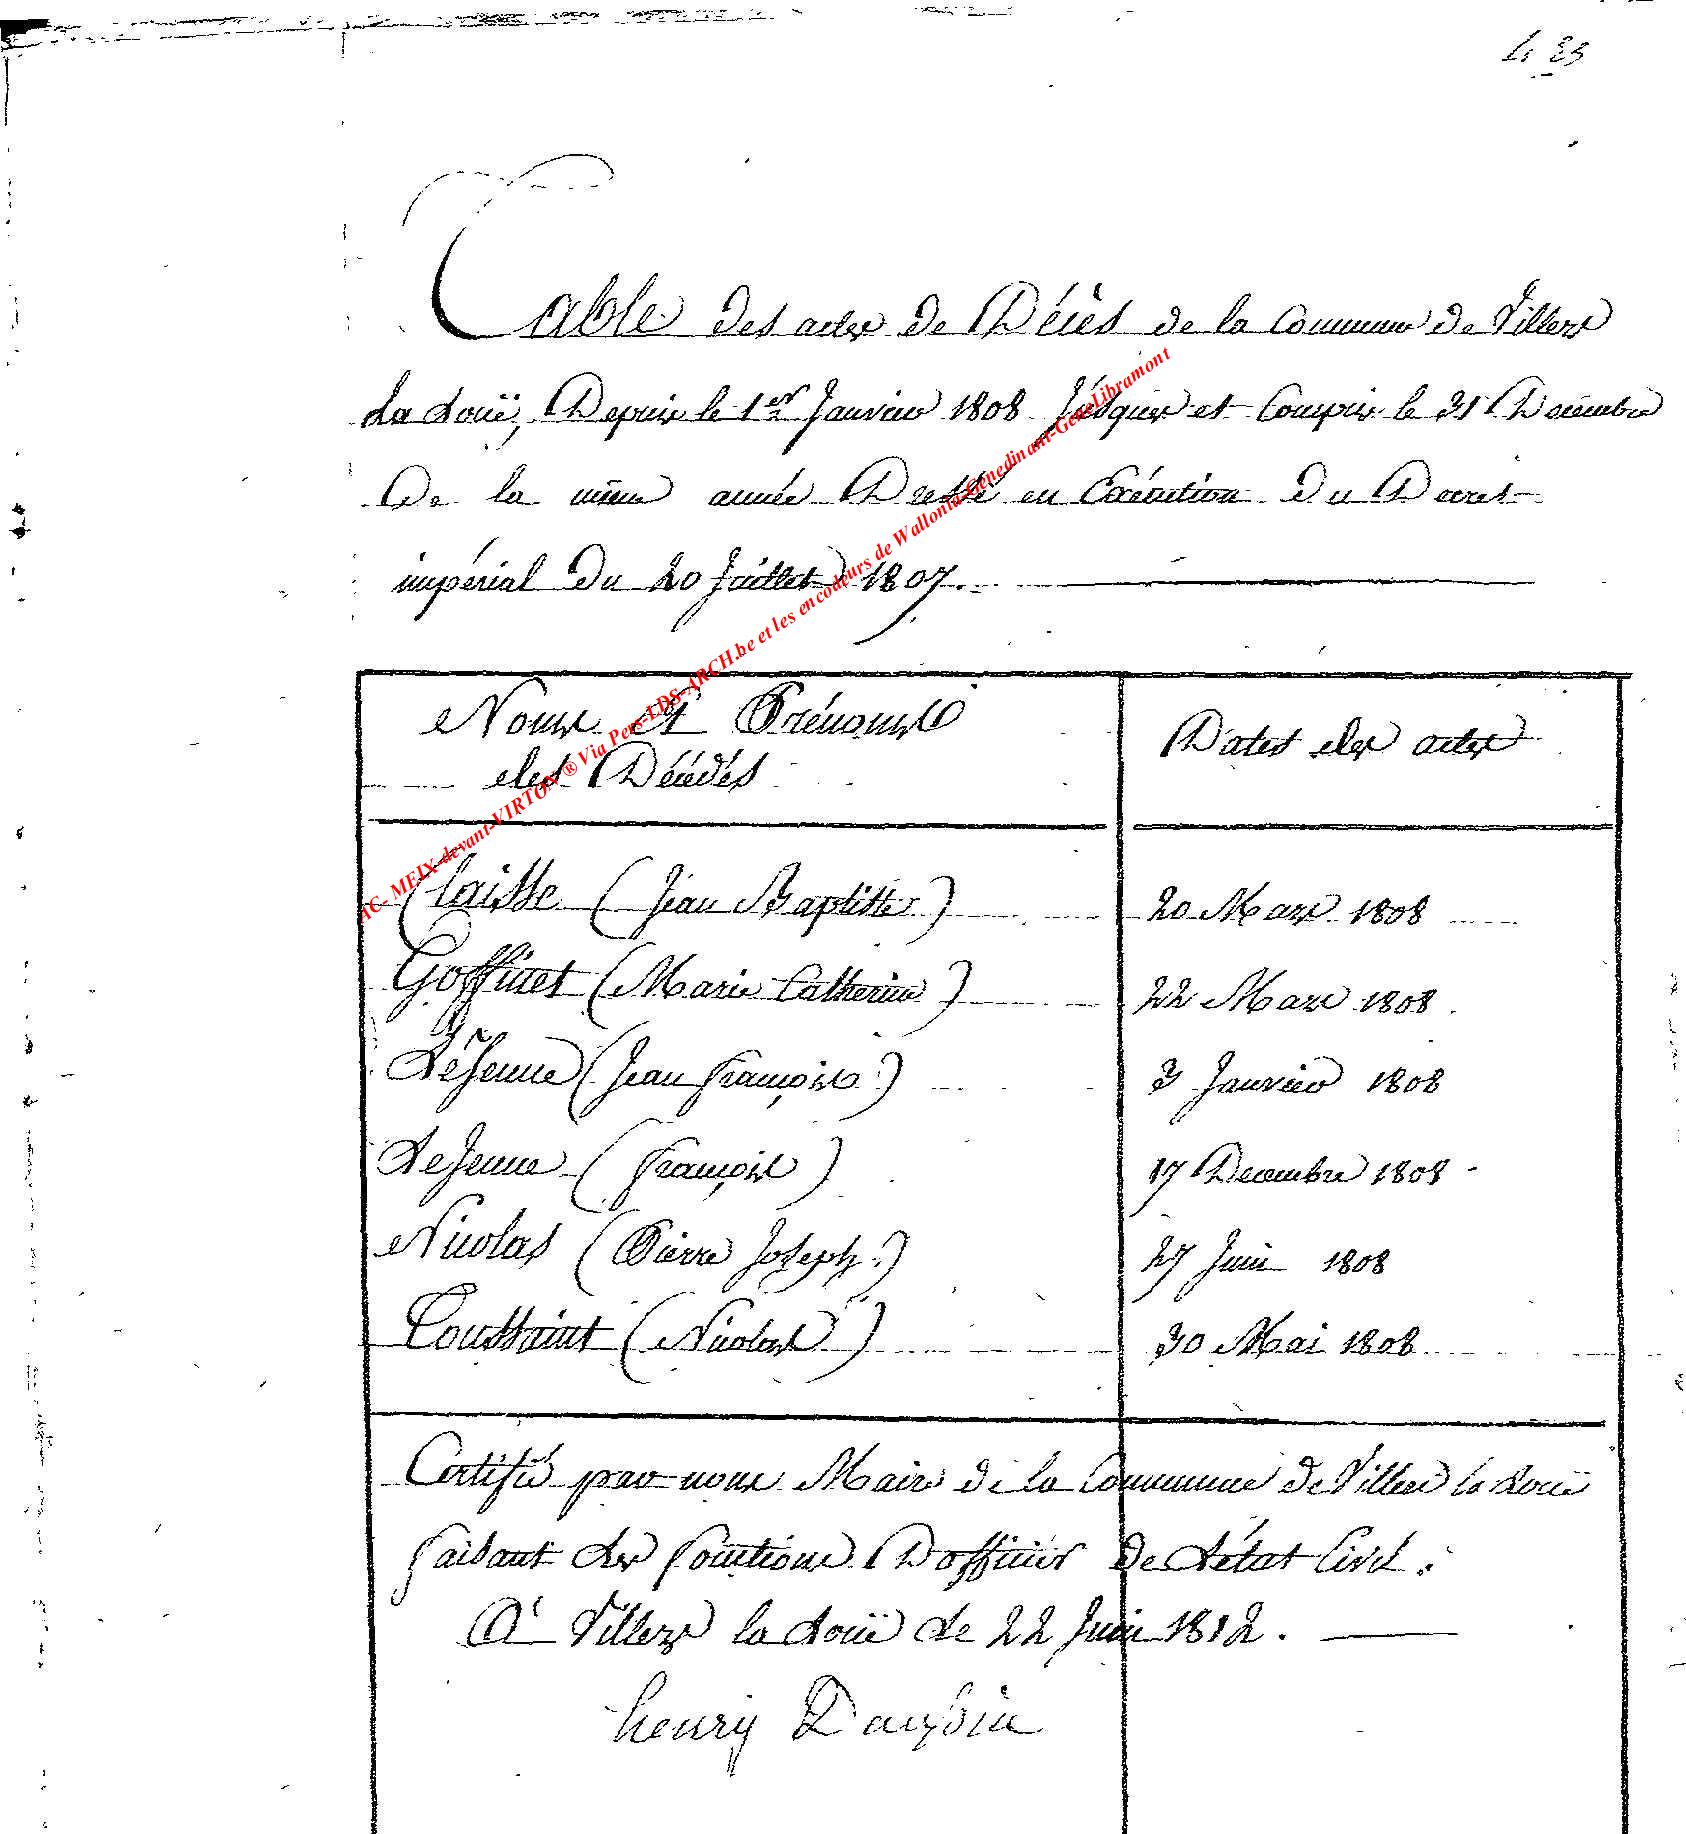 Table des actes de Décès de la Commune de Villers
La Loüe, Depuis le 1er Janvier 1808 Jusques et Compris le 31 Décembre
De la même année Dressé en Exécution Du Decret
impérial Du 20 Juillet 1807.
Noms et Prénoms
des Décédés
Dates des actes
Claisse (Jean Baptiste) 20 Mars 1808
Goffinet (Marie Catherine) 22 Mars 1808
LeJeune (Jean françois) 3 Janvier 1808
LeJeune (françois) 17 Decembre 1808
Nicolas (Pierre Joseph) 27 Juin 1808
Toussaint (Nicolas) 30 Mai 1808
Certifié par nous Maire de la Commune de Villers la Loüe
faisant Les fonctions D'officier De L'état Civil.
A Villers la Loüe Le 22 Juin 1812.
henry
AC- MEIX-devant-VIRTON ® Via Pers-LDS-ARCH.be et les encodeurs de Wallonia-Genedinant-GeneLibramont